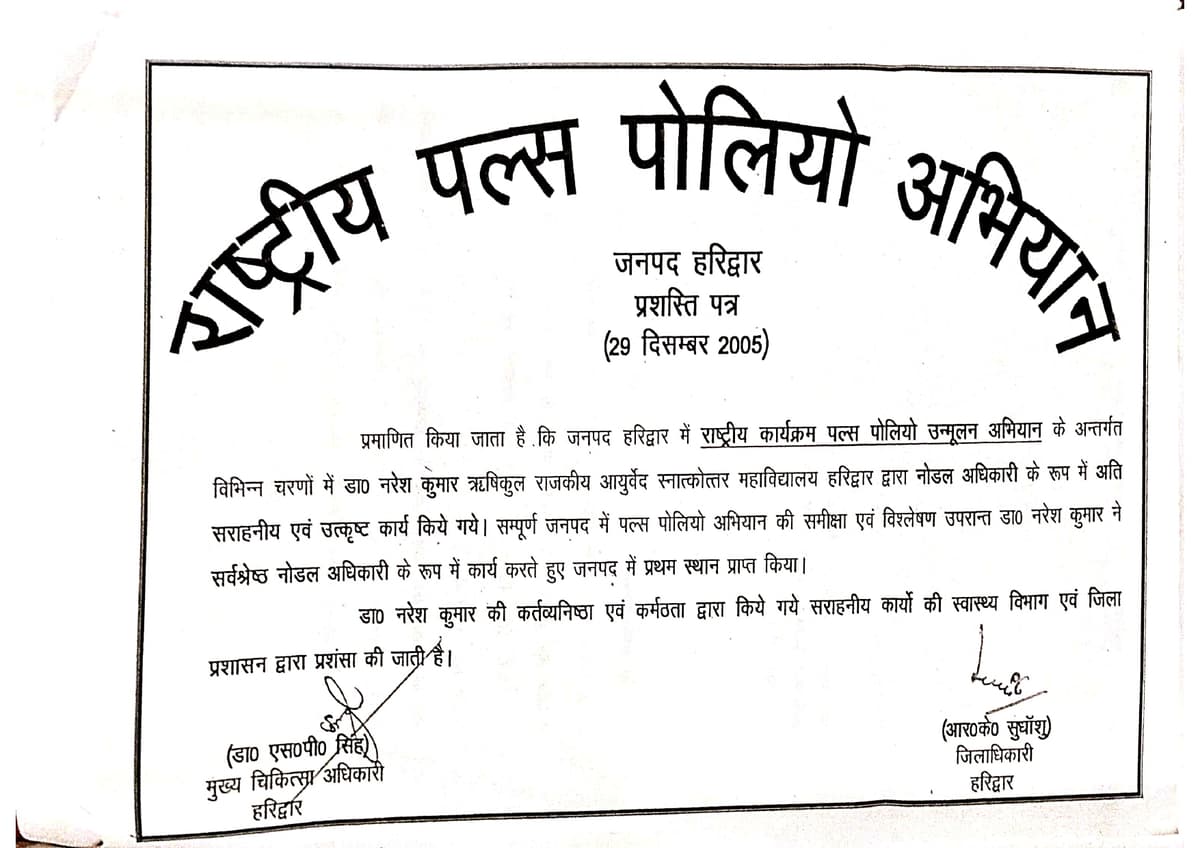 राष्ट्रीय पल्स पोलियो अभियान
जनपद हरिद्वार
प्रशस्ति पत्र
(29 दिसम्बर 2005)
प्रमाणित किया जाता है .कि जनपद हरिद्वार में राष्ट्रीय कार्यक्रम पल्स पोलियो उन्मूलन अभियान के अन्तर्गत
विभिन्न चरणों में डा0 नरेश कुमार ऋषिकुल राजकीय आयुर्वेद स्नातकोत्तर महाविद्यालय हरिद्वार द्वारा नोडल अधिकारी के रूप में अति
सराहनीय एवं उत्कृष्ट कार्य किये गये। सम्पूर्ण जनपद में पल्स पोलियो अभियान की समीक्षा एवं विश्लेषण उपरान्त डा0 नरेश कुमार ने
सर्वश्रेष्ठ नोडल अधिकारी के रूप में कार्य करते हुए जनपद में प्रथम स्थान प्राप्त किया।
डा0 नरेश कुमार की कर्तव्यनिष्ठा एवं कर्मठता द्वारा किये गये सराहनीय कार्यो की स्वास्थ्य विभाग एवं जिला
प्रशासन द्वारा प्रशंसा की जाती है।
(डा0 एस0पी0 सिंह)
मुख्य चिकित्सा अधिकारी
हरिद्वार
(आर0के0 सुधॉशु)
जिलाधिकारी
हरिद्वार